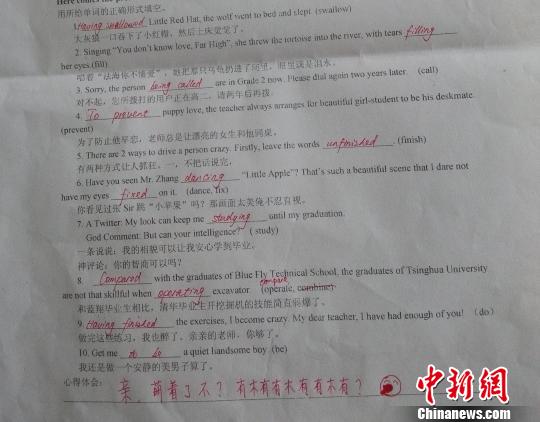 用所给单词的正确形式填空。
1. Having swallowed Little Red Hat, the wolf went to bed and slept (swallow)
大灰狼一口吞下了小红帽，然后上床觉觉了。
2. Singing "You don't know love, Far High", she threw the tortoise into the river, with tears filling
her eyes (fill)
唱着"法海你不懂爱"，她把那只乌龟扔进了河里，眼里满是泪水。
3. Sorry, the person being called are in Grade 2 now. Please dial again two years later. (call)
对不起，您所拨打的用户正在高二，请两年后再拨。
4. To prevent puppy love, the teacher always arranges for beautiful girl-student to be his deskmate.
(prevent)
为了防止他早恋，老师总是让漂亮的女生和他同桌。
5. There are 2 ways to drive a person crazy. Firstly, leave the words unfinished. (finish)
有两种方式让人抓狂。一，不把话说完，
6. Have you seen Mr. Zhang dancing "Little Apple"? That's such a beautiful scene that I dare not
have my eyes fixed on it. (dance, fix)
你看见过张 Sir 跳"小苹果"吗？那画面太美俺不忍直视。
7. A Twitter: My look can keep me studying until my graduation.
God Comment: But can your intelligence? ( study)
一条说说：我的相貌可以让我安心学到毕业。
神评论：你的智商可以吗？
8. Compared with the graduates of Blue Fly Technical School, the graduates of Tsinghua University
compare
are not that skillful when operating excavator (operate, combine)
和蓝翔毕业生相比，清华毕业生开挖掘机的技能简直弱爆了。
9. Having finished the exercises, I become crazy. My dear teacher, I have had enough of you! (do)
做完这些练习，我也醉了。亲亲的老师，你够了。
10. Get me to be a quiet handsome boy (be)
我还是做一个安静的美男子算了。
心得体会： 亲 萌着了不？有木有有木有有木有？
中新网
Chinanews.com